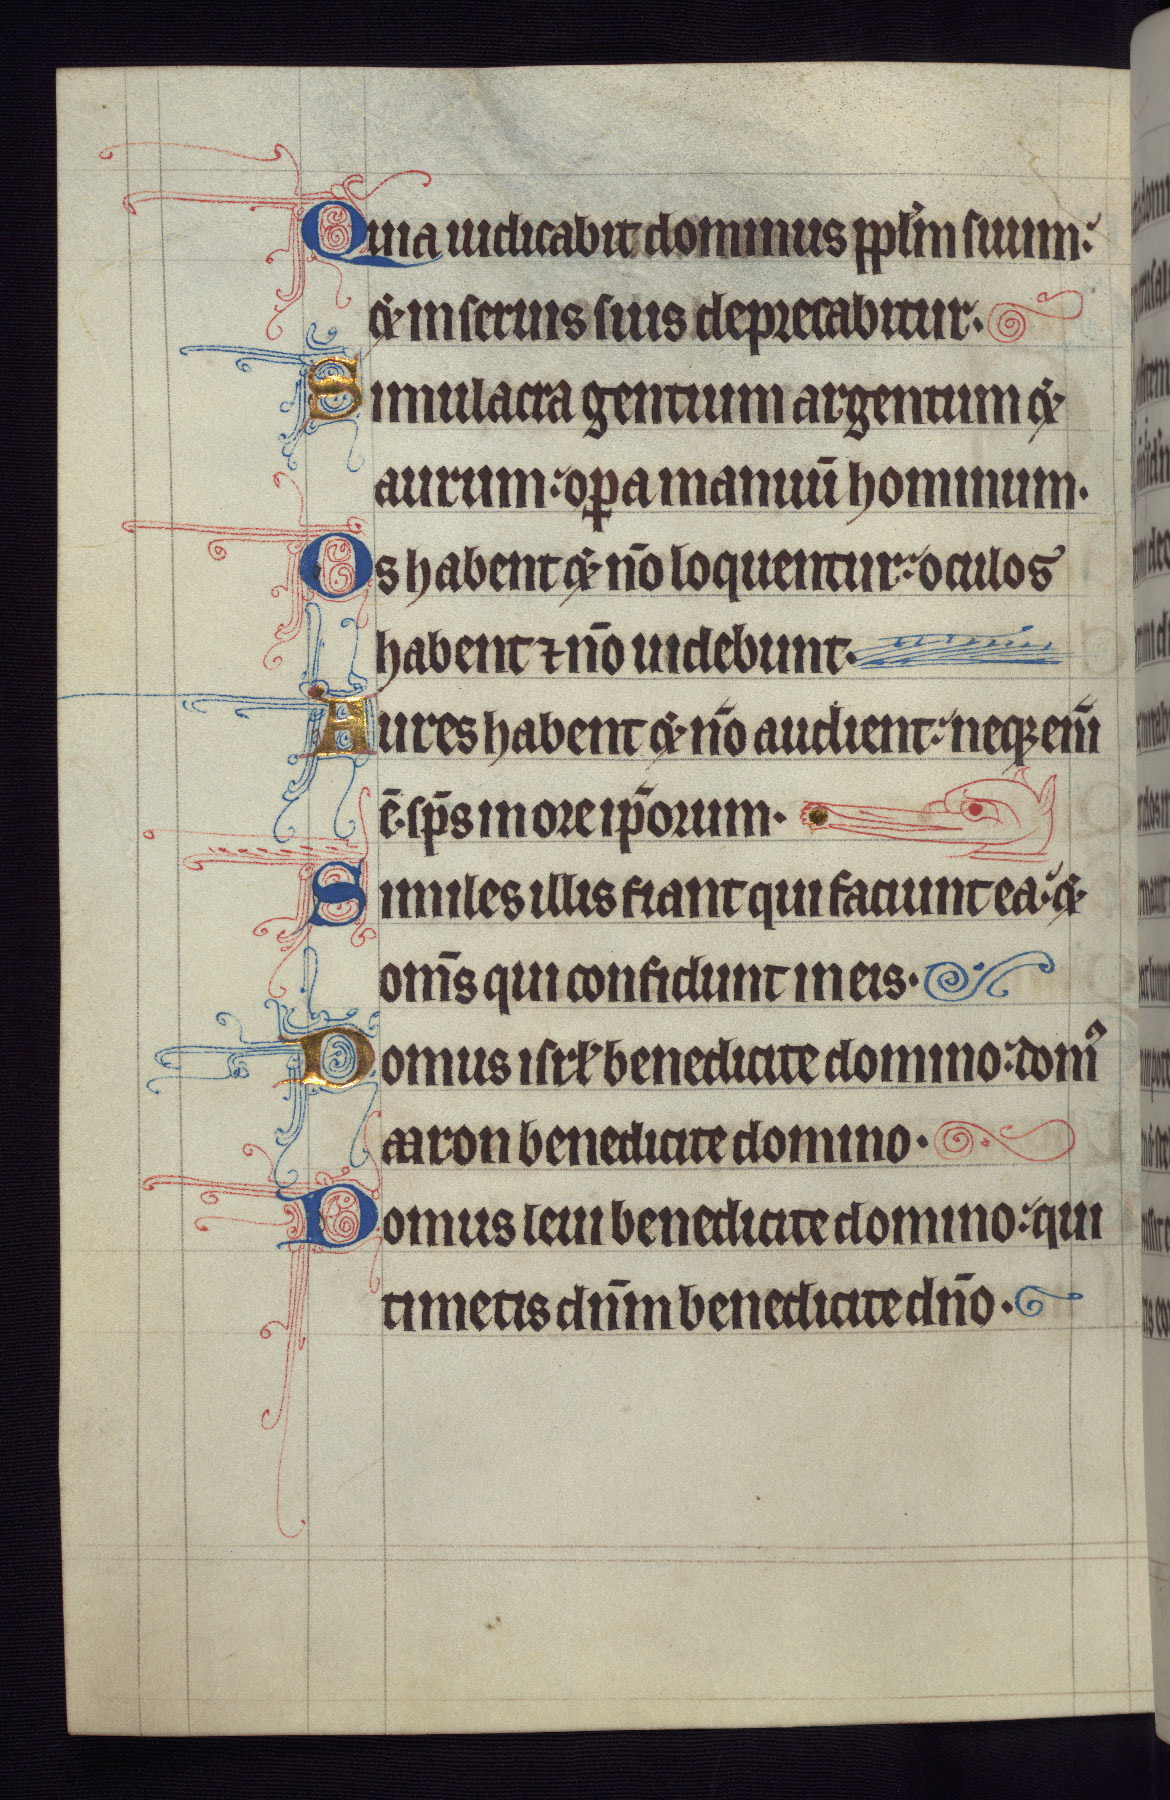 Quia iudicabit dominus ppl̄m suum:
& in seruis suis deprecabitur.
Simulacra gentium argentum &
aurum: oꝑa manuū hominum.
Os habent & nō loquentur: oculos
habent ⁊ nō uidebunt.
Aures habent & nō audient: neqꝫ eni̅
ē sp̄s in ore ip̄orum.
Similes illis fiant qui faciunt ea: &
om̄s qui confidunt in eis.
Domus isrł benedicite domino: domꝰ
aaron benedicite domino.
Domus leui benedicite domino: qui
timetis dn̄m benedicite dn̄o.